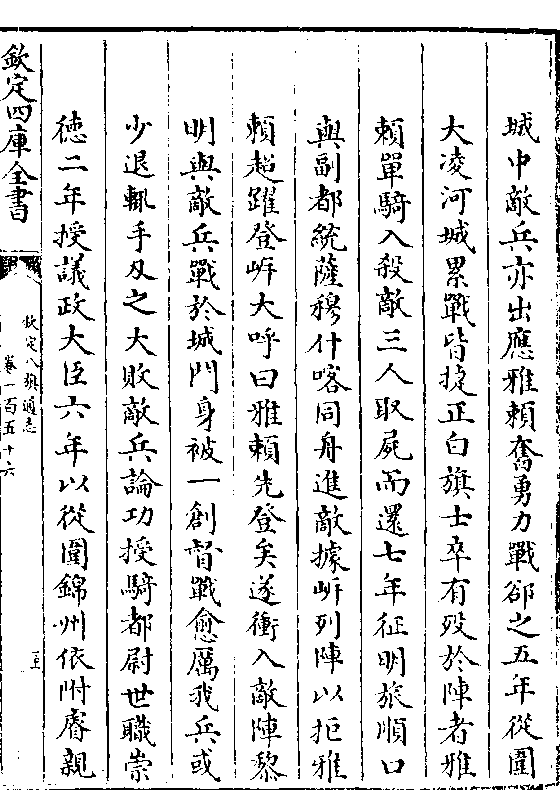 城中敵兵亦出應雅賴奮勇力戰卻之五年從圍
大凌河城累戰皆捷正白旗士卒有歿於陣者雅
賴單騎入殺敵三人取屍而還七年征明旅順口
與副都統薩穆什喀同舟進敵據㟁列陣以拒雅
賴超躍登㟁大呼曰雅賴先登矣遂衝入敵陣黎
明與敵兵戰於城門身被一創督戰愈厲我兵或
少退輒手刃之大敗敵兵論功授騎都尉世職崇
德二年授議政大臣六年以從圍錦州依附睿親
欽定四庫全書
欽定八旗通志
卷一百五十六